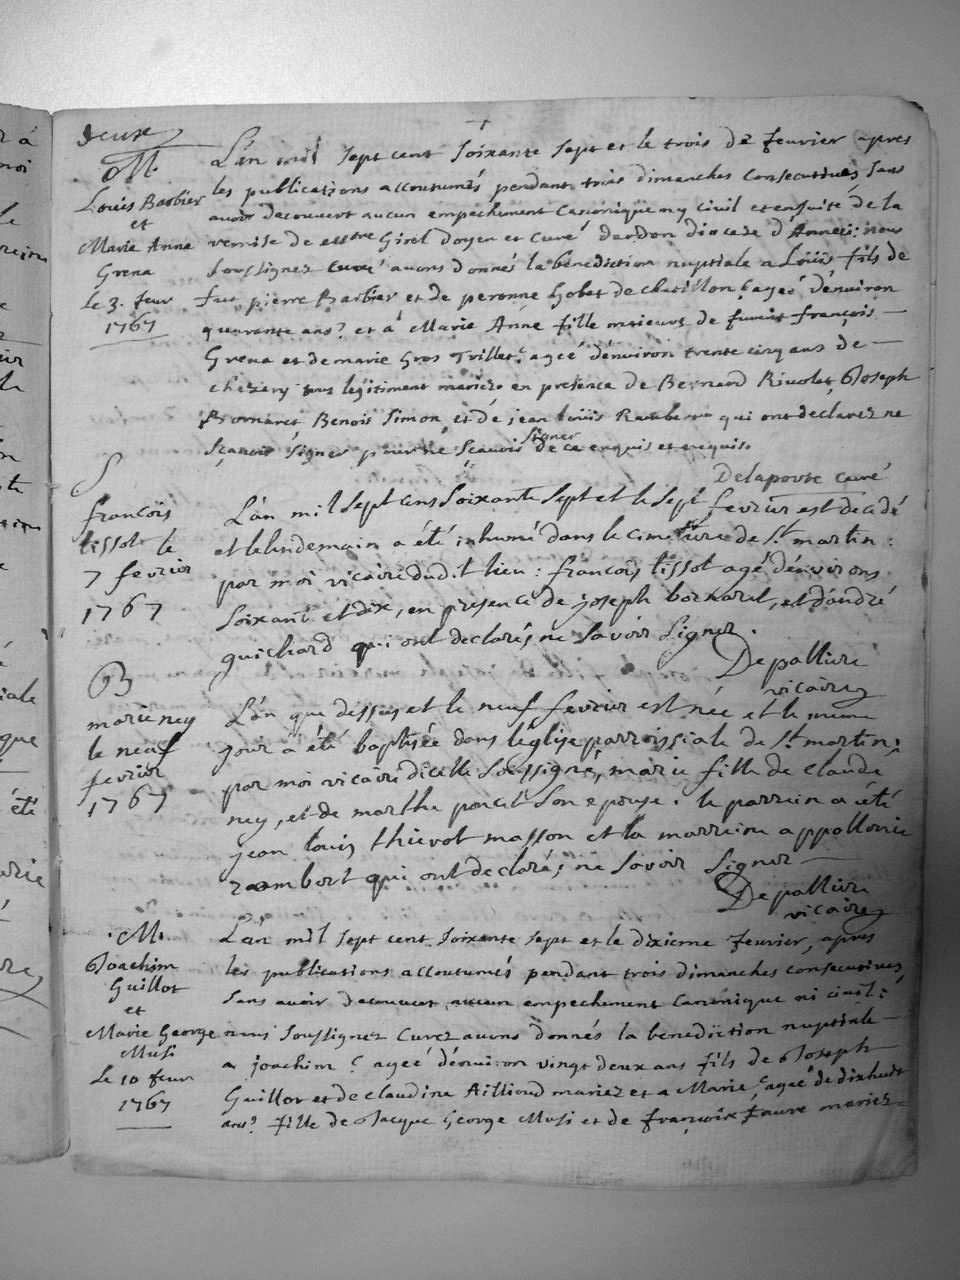 deux
M.
Louis Barbier
et
Marie Anne
Grena
Le 3. fevr
1767
L'an mil sept cent soixante sept et le trois de fevrier apres
les publications accoutumés pendant trois dimanches consecutives sans
avoir decouvert aucun empechement Canonique ny civil et ensuite de la
remise de Girel Doyen et Curé dardon diocese d'Anneci: nous
soussignez curé avons donnés la benediction nuptiale a Loüis fils de
fut pierre Barbier et de peronne Gobet de chatillon agé d'environ
quarante ans? et a Marie Anne fille mineure de François
Grena et de marie Gros Trillet agée d'environ trente cinq ans de
chezery tous légitiment mariez en presence de Bernard Rivolet, Joseph
Bornaret Benoit Simon et de jean loüis Rambert qui ont declarez ne
sçavoir signer pour ne sçavoir signer de ce enquis et requis.
Delapouse curé
S
françois
tissot le
7 fevrier
1767
L'an mil sept cens soixante sept et le sept fevrier est decidé
et le lendemain a été inhumé dans le cimetiere de St. martin:
par moi vicaire dudit lieu: françois tissot agé d'environs
soixante et dix, en presence de joseph bornaret, et d'andré
guichard qui ont declarés ne savoir signer.
Depalliere
vicaire
B
marie ney
le neuf
fevrier
1767
L'an que dessus et le neuf fevrier est née et le meme
jour a été baptisée dans l'église parroissiale de St. martin;
par moi vicaire d'icelle soussigné, marie fille de claude
ney, et de marthe poncet son epouse: le parrein a été
jean louis thievot masson et la marreine appollonie
rambert qui ont declarés ne savoir signer
Depalliere
vicaire
M.
Joachim
Guillot
et
Marie George
Musi
Le 10 fevr
1767
L'an mil sept cent soixante sept et le dixieme fevrier, apres
les publications accoutumés pendant trois dimanches consecutives
sans avoir decouvert aucun empechement Canonique ni civil:
nous soussignez Curez avons donnés la benediction nuptiale
a joachim agé d'environ vingt deux ans fils de Joseph
Guillot et de claudine Ailloud mariez et a Marie agée de dixhuit
ans? fille de Jacque George Musi et de françoise faure mariez